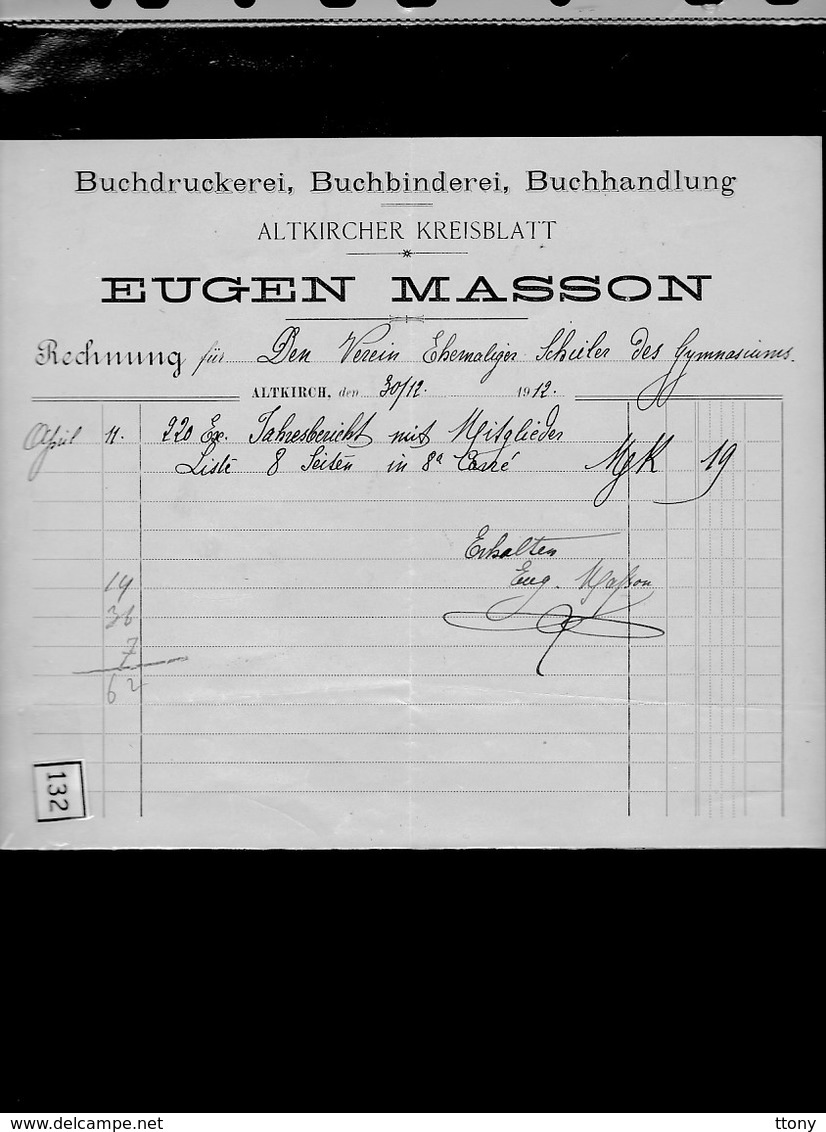 Buchdruckerei, Buchbinderei, Buchhandlung
ALTKIRCHER KREISBLATT
EUGEN MASSON
Rechnung für Den Verein Ehemaliger Schüler des Gymnasiums.
ALTKIRCH, den 30/12. 1912.
April 11. 220 Ex. Jahresbericht mit Mitglieder
Liste 8 Seiten in 8° Carré MgK 19
Erhalten
Eug. Masson
19
36
7
62
132
delcampe.net
ttony